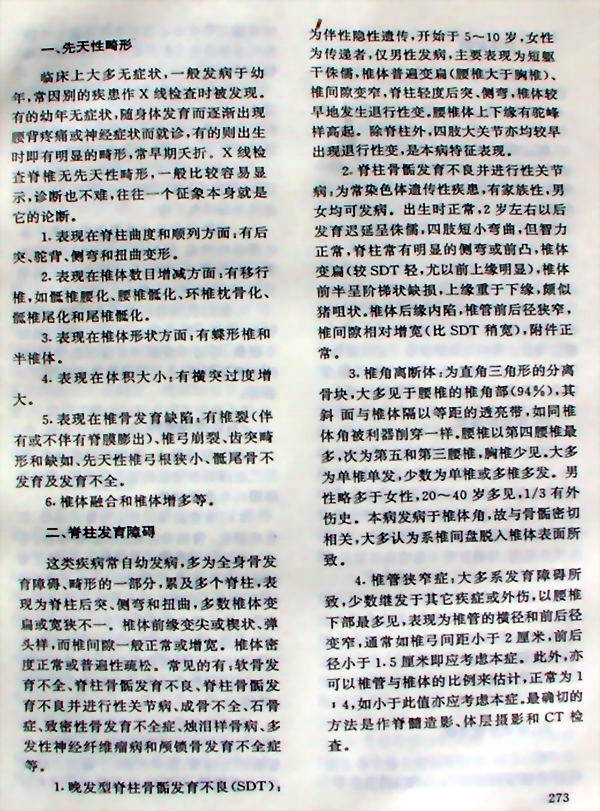 一、先天性畸形
临床上大多无症状，一般发病于幼
年，常因别的疾患作 X 线检查时被发现。
有的幼年无症状，随身体发育而逐渐出现
腰背疼痛或神经症状而就诊，有的则出生
时即有明显的畸形，常早期夭折。X 线检
查脊椎无先天性畸形，一般比较容易显
示，诊断也不难，往往一个征象本身就是
它的论断。
1. 表现在脊柱曲度和顺列方面：有后
突、驼背、侧弯和扭曲变形。
2. 表现在椎体数目增减方面：有移行
椎，如骶椎腰化、腰椎骶化、环椎枕骨化、
骶椎尾化和尾椎骶化。
3. 表现在椎体形状方面：有蝶形椎和
半椎体。
4. 表现在体积大小：有横突过度增
大。
5. 表现在椎骨发育缺陷：有椎裂（伴
有或不伴有脊膜膨出）、椎弓崩裂、齿突畸
形和缺如、先天性椎弓根狭小、骶尾骨不
发育及发育不全。
6. 椎体融合和椎体增多等。
二、脊柱发育障碍
这类疾病常自幼发病，多为全身骨发
育障碍、畸形的一部分，累及多个脊柱，表
现为脊柱后突、侧弯和扭曲，多数椎体变
扁或宽狭不一。椎体前缘变尖或楔状、弹
头样，而椎间隙一般正常或增宽。椎体密
度正常或普遍性疏松。常见的有：软骨发
育不全、脊柱骨骺发育不良、脊柱骨骺发
育不良并进行性关节病、成骨不全、石骨
症、致密性骨发育不全症、烛泪样骨病、多
发性神经纤维瘤病和颅锁骨发育不全症
等。
1. 晚发型脊柱骨骺发育不良（SDT）：
为伴性隐性遗传，开始于 5～10 岁，女性
为传递者，仅男性发病，主要表现为短躯
干侏儒，椎体普遍变扁（腰椎大于胸椎）、
椎间隙变窄，脊柱轻度后突、侧弯，椎体较
早地发生退行性变。腰椎体上下缘有驼峰
样高起。除脊柱外，四肢大关节亦均较早
出现退行性变，是本病特征表现。
2. 脊柱骨骺发育不良并进行性关节
病，为常染色体遗传性疾患，有家族性，男
女均可发病。出生时正常，2 岁左右以后
发育迟延呈侏儒，四肢短小弯曲，但智力
正常，脊柱常有明显的侧弯或前凸，椎体
变扁（较 SDT 轻，尤以前上缘明显），椎体
前半呈阶梯状缺损，上缘重于下缘，颇似
猪咀状。椎体后缘内陷，椎管前后径狭窄，
椎间隙相对增宽（比 SDT 稍宽），附件正
常。
3. 椎角离断体：为直角三角形的分离
骨块，大多见于腰椎的椎角部（94%），其
斜 面与椎体隔以等距的透亮带，如同椎
体角被利器削穿一样。腰椎以第四腰椎最
多，次为第五和第三腰椎，胸椎少见。大多
为单椎单发，少数为单椎或多椎多发。男
性略多于女性，20～40 岁多见，1/3 有外
伤史。本病发病于椎体角，故与骨骺密切
相关，大多认为系椎间盘脱入椎体表面所
致。
4. 椎管狭窄症：大多系发育障碍所
致，少数继发于其它疾症或外伤，以腰椎
下部最多见，表现为椎管的横径和前后径
变窄，通常如椎弓间距小于 2 厘米，前后
径小于 1.5 厘米即应考虑本症。此外，亦
可以椎管与椎体的比例来估计，正常为 1
：4，如小于此值亦应考虑本症。最确切的
方法是作脊髓造影、体层摄影和 CT 检
查。
273